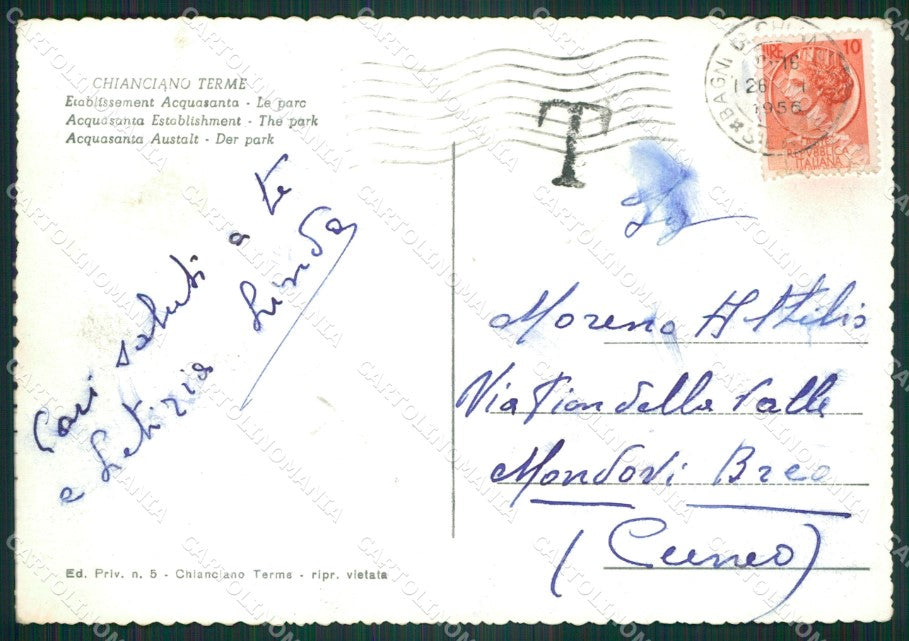 CHIANCIANO TERME
Etablissement Acquasanta - Le parc
Acquasanta Establishment - The park
Acquasanta Austalt - Der park
Cari saluti a te
e Letizia Linda
Ed. Priv. n. 5 - Chianciano Terme - ripr. vietata
T
LIRE 10
REPUBBLICA
ITALIANA
BAGNI
26
1956
Moreno Attilio
Via Pian della Valle
Mondovi Breo
(Cuneo)
CARTOLINOMANIA